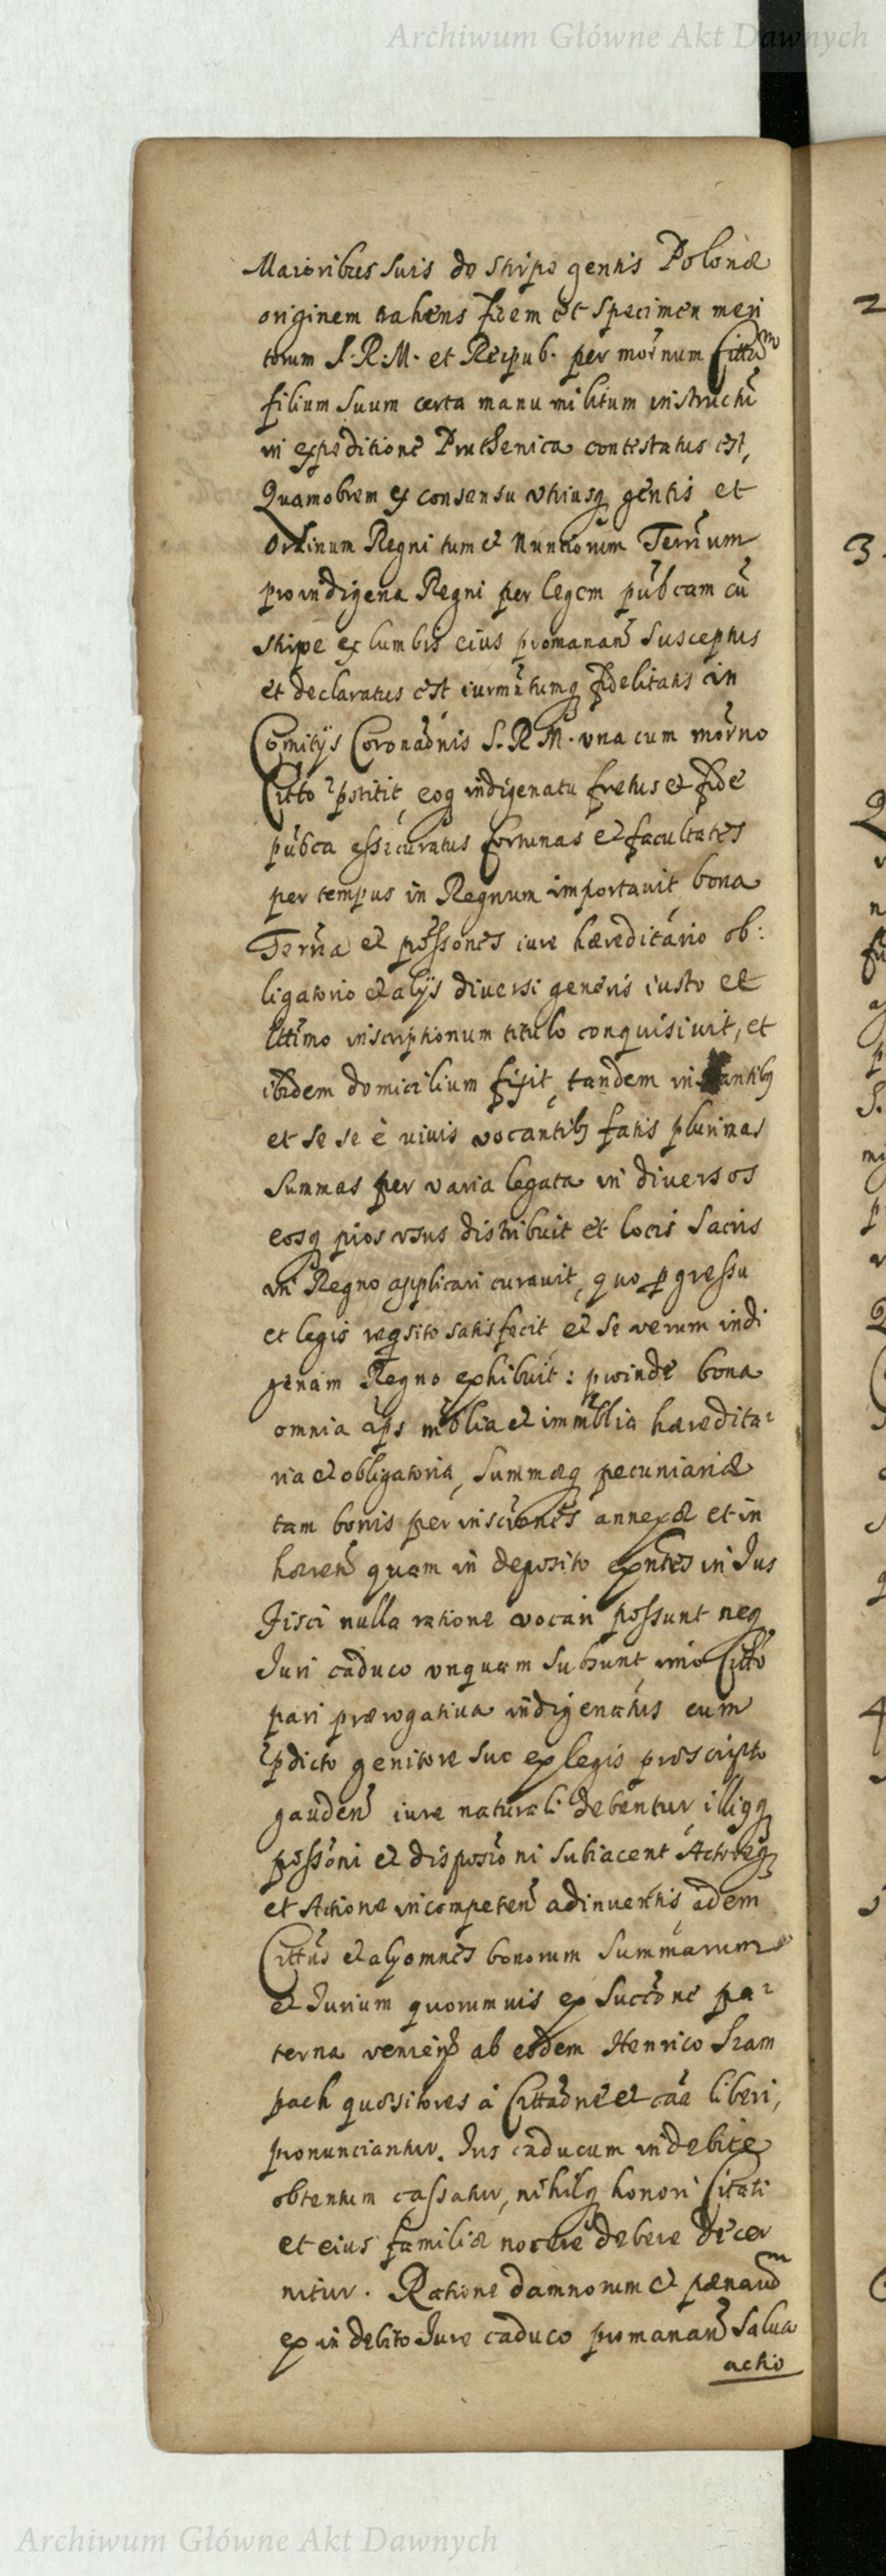 Archiwum Główne Akt Dawnych
Maioribus suis de stirpe gentis Polonæ
originem trahens fidem et specimen meri
torum S. R. M. et Reipub. per mornum Cittũm
filium suum certa manu militum instructũ
in expeditione Pruthenica contestatus est,
Quamobrem ex consensu vtriusq gentis et
Ordinum Regni tum et Nuntiorum Terrium
pro indigena Regni per legem pubcam cũ
stirpe ex lumbis eius promanan susceptus
et declaratus est iurmntumq fidelitatis in
Comitÿs Coronaõnis S. R. M. vna cum morno
Citto pstitit, eoq indigenatu fretus et fide
pubca essicuratus fortunas et facultates
per tempus in Regnum importauit, bona
Terria et possones iure hæreditario ob:
ligatorio et alÿs diuersi generis iusto et
lttimo inscriptionum titulo conquisiuit, et
ibidem domicilium fixit, tandem in antibq
et se se è uiuis vocantibq fatis plurimas
summas per varia legata in diuersos
eosq pios vsus distribuit et locis sacris
in Regno applicari curauit, quo pgressu
et legis reqsito satisfecit et se verum indi
genam Regno exhibuit: proinde bona
omnia ips mblia et immblia hæredita:
ria et obligatoria, summæq pecuniariæ
tam bonis per inscrones annexæ et in
hæren quam in deposito exntes in Jus
Fisci nulla ratione vocari possunt neq
Juri caduco vnquam subsunt imo Citto
pari prærogatiua indigenatus cum
pdicto genitore suo ex legis præscripto
gauden iure naturali debentur, illiqq
possoni et disposioni subiacent Actoreq
et Actione incompeten adinuentis, idem
Cittus et aly omnes bonorum summarum
et Jurium quorumuis ex Succõne pa:
terna venien ab eodem Henrico Szam
pach quæsitores à Cittaõne et caa liberi,
pronunciantur. Jus caducum indebite
obtentum cassatur, nihilq honori Citati
et eius familiæ nocere debere decer
nitur. Ratione damnorum et pænarum
ex indebito Jure caduco promanan salua
actio
2
3.
4
5
Archiwum Główne Akt Dawnych